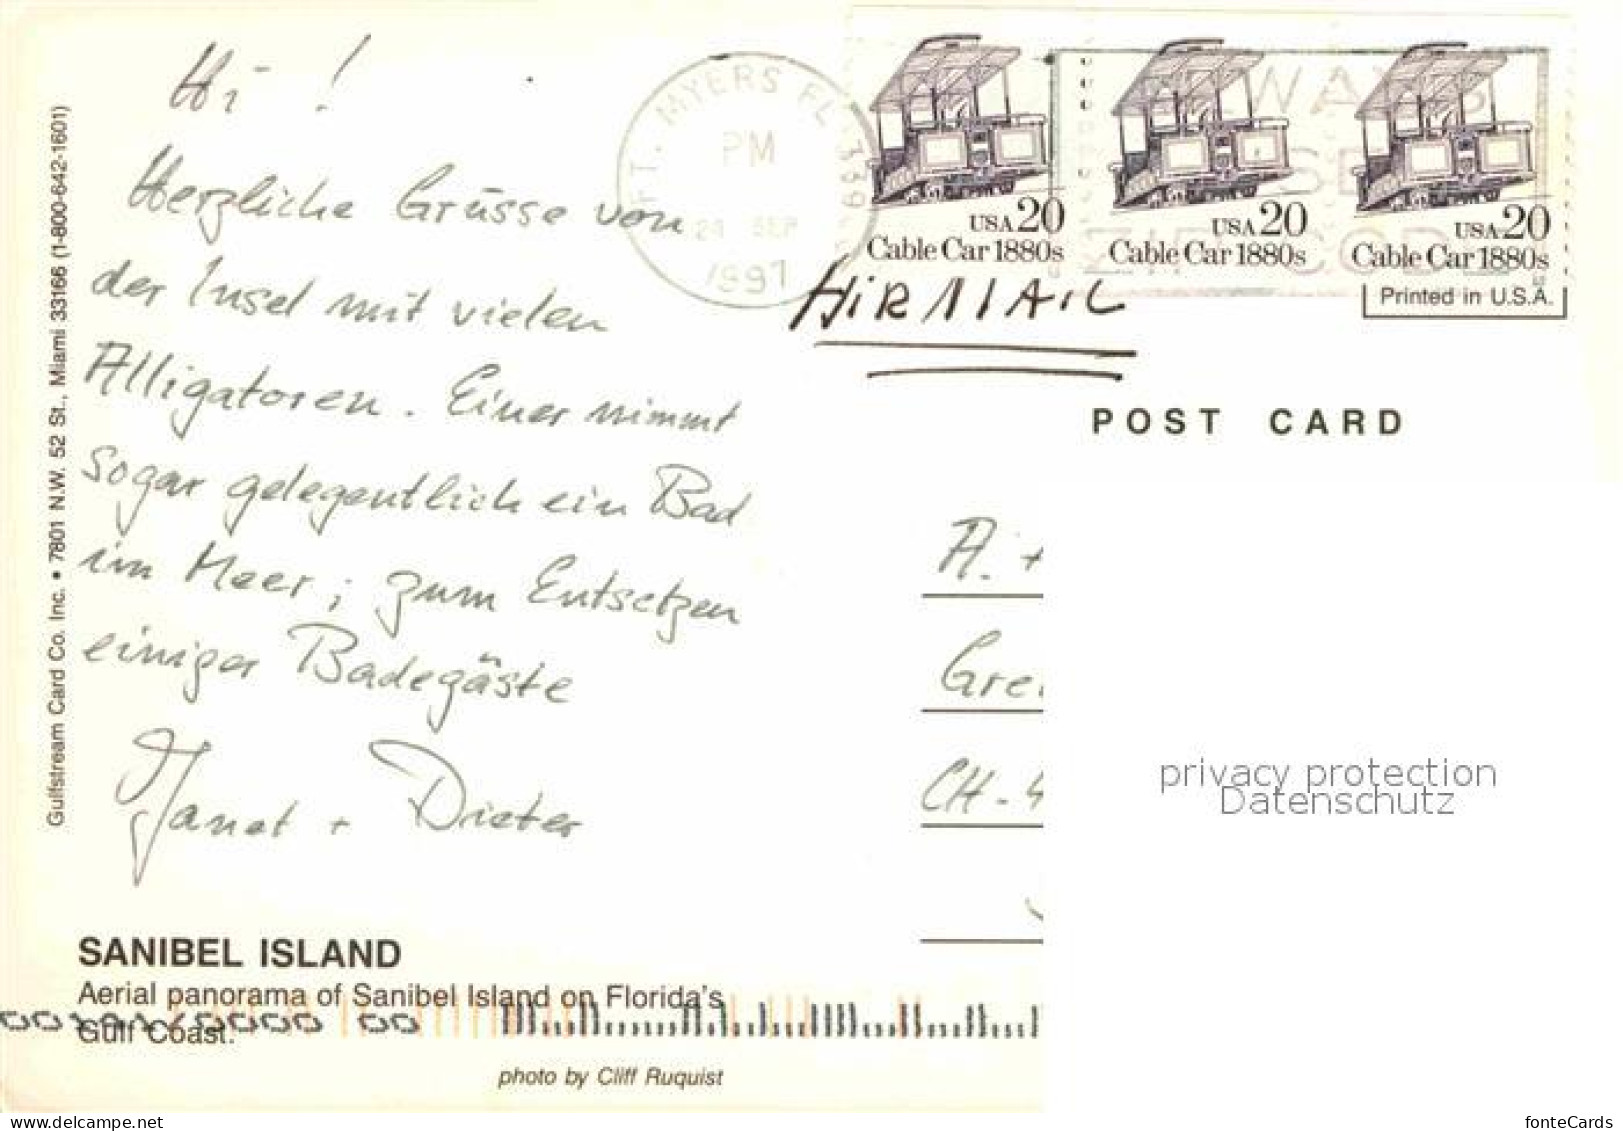 Hi !
Herzliche Grüsse von
der Insel mit vielen
Alligatoren. Einer nimmt
sogar gelegentlich ein Bad
im Meer; zum Entsetzen
einiger Badegäste
Janet + Dieter
SANIBEL ISLAND
Aerial panorama of Sanibel Island on Florida's
Gulf Coast.
photo by Cliff Ruquist
Gulfstream Card Co. Inc. • 7801 N.W. 52 St., Miami 33166 (1-800-642-1601)
FT. MYERS FL 339
PM
24 SEP
1997
USA 20
Cable Car 1880s
USA 20
Cable Car 1880s
USA 20
Cable Car 1880s
ZIP CODE
Printed in U.S.A.
AIRMAIL
POST CARD
A. +
CH-4
privacy protection
Datenschutz
www.delcampe.net
fonteCards